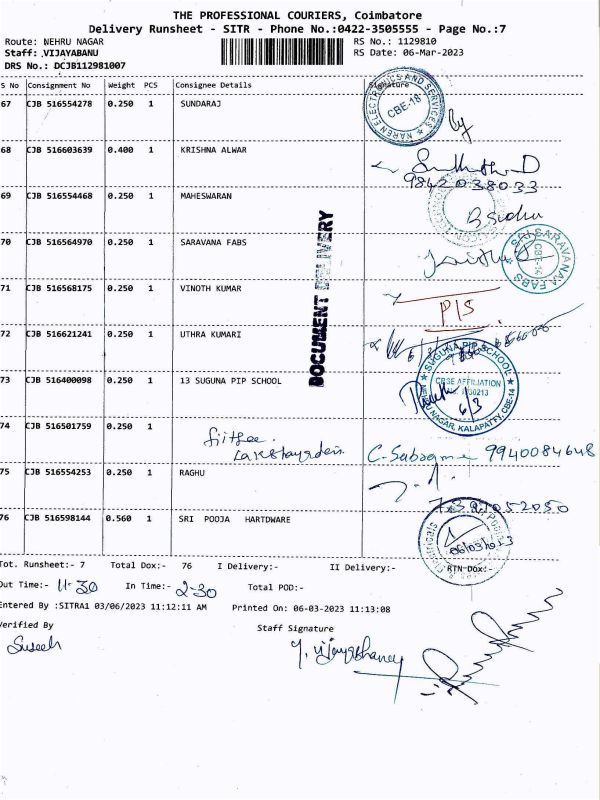 THE PROFESSIONAL COURIERS, Coimbatore
Delivery Runsheet - SITR - Phone No.:0422-3505555 - Page No.:7
Route: NEHRU NAGAR RS No.: 1129810
Staff: VIJAYABANU RS Date: 06-Mar-2023
DRS No.: DCJB112981007
S No Consignment No Weight PCS Consignee Details Signature
67 CJB 516554278 0.250 1 SUNDARAJ
NAREN ELECTRONICS AND SERVICES CBE-18
68 CJB 516603639 0.400 1 KRISHNA ALWAR
9842038033
69 CJB 516554468 0.250 1 MAHESWARAN
70 CJB 516564970 0.250 1 SARAVANA FABS
SRI SARAVANAA FABS CBE-14
71 CJB 516568175 0.250 1 VINOTH KUMAR
P/S
72 CJB 516621241 0.250 1 UTHRA KUMARI
73 CJB 516400098 0.250 1 13 SUGUNA PIP SCHOOL
SUGUNA PIP SCHOOL
CBSE AFFILIATION
NEHRU NAGAR, KALAPATTY, CBE-14
6/3
74 CJB 516501759 0.250 1
9940084648
75 CJB 516554253 0.250 1 RAGHU
76 CJB 516598144 0.560 1 SRI POOJA HARTDWARE
DOCUMENT DELIVERY
Tot. Runsheet:- 7 Total Dox:- 76 I Delivery:- II Delivery:- RTN-Dox:-
Out Time:- 11-30 In Time:- 2-30 Total POD:-
Entered By :SITRA1 03/06/2023 11:12:11 AM Printed On: 06-03-2023 11:13:08
Verified By Staff Signature